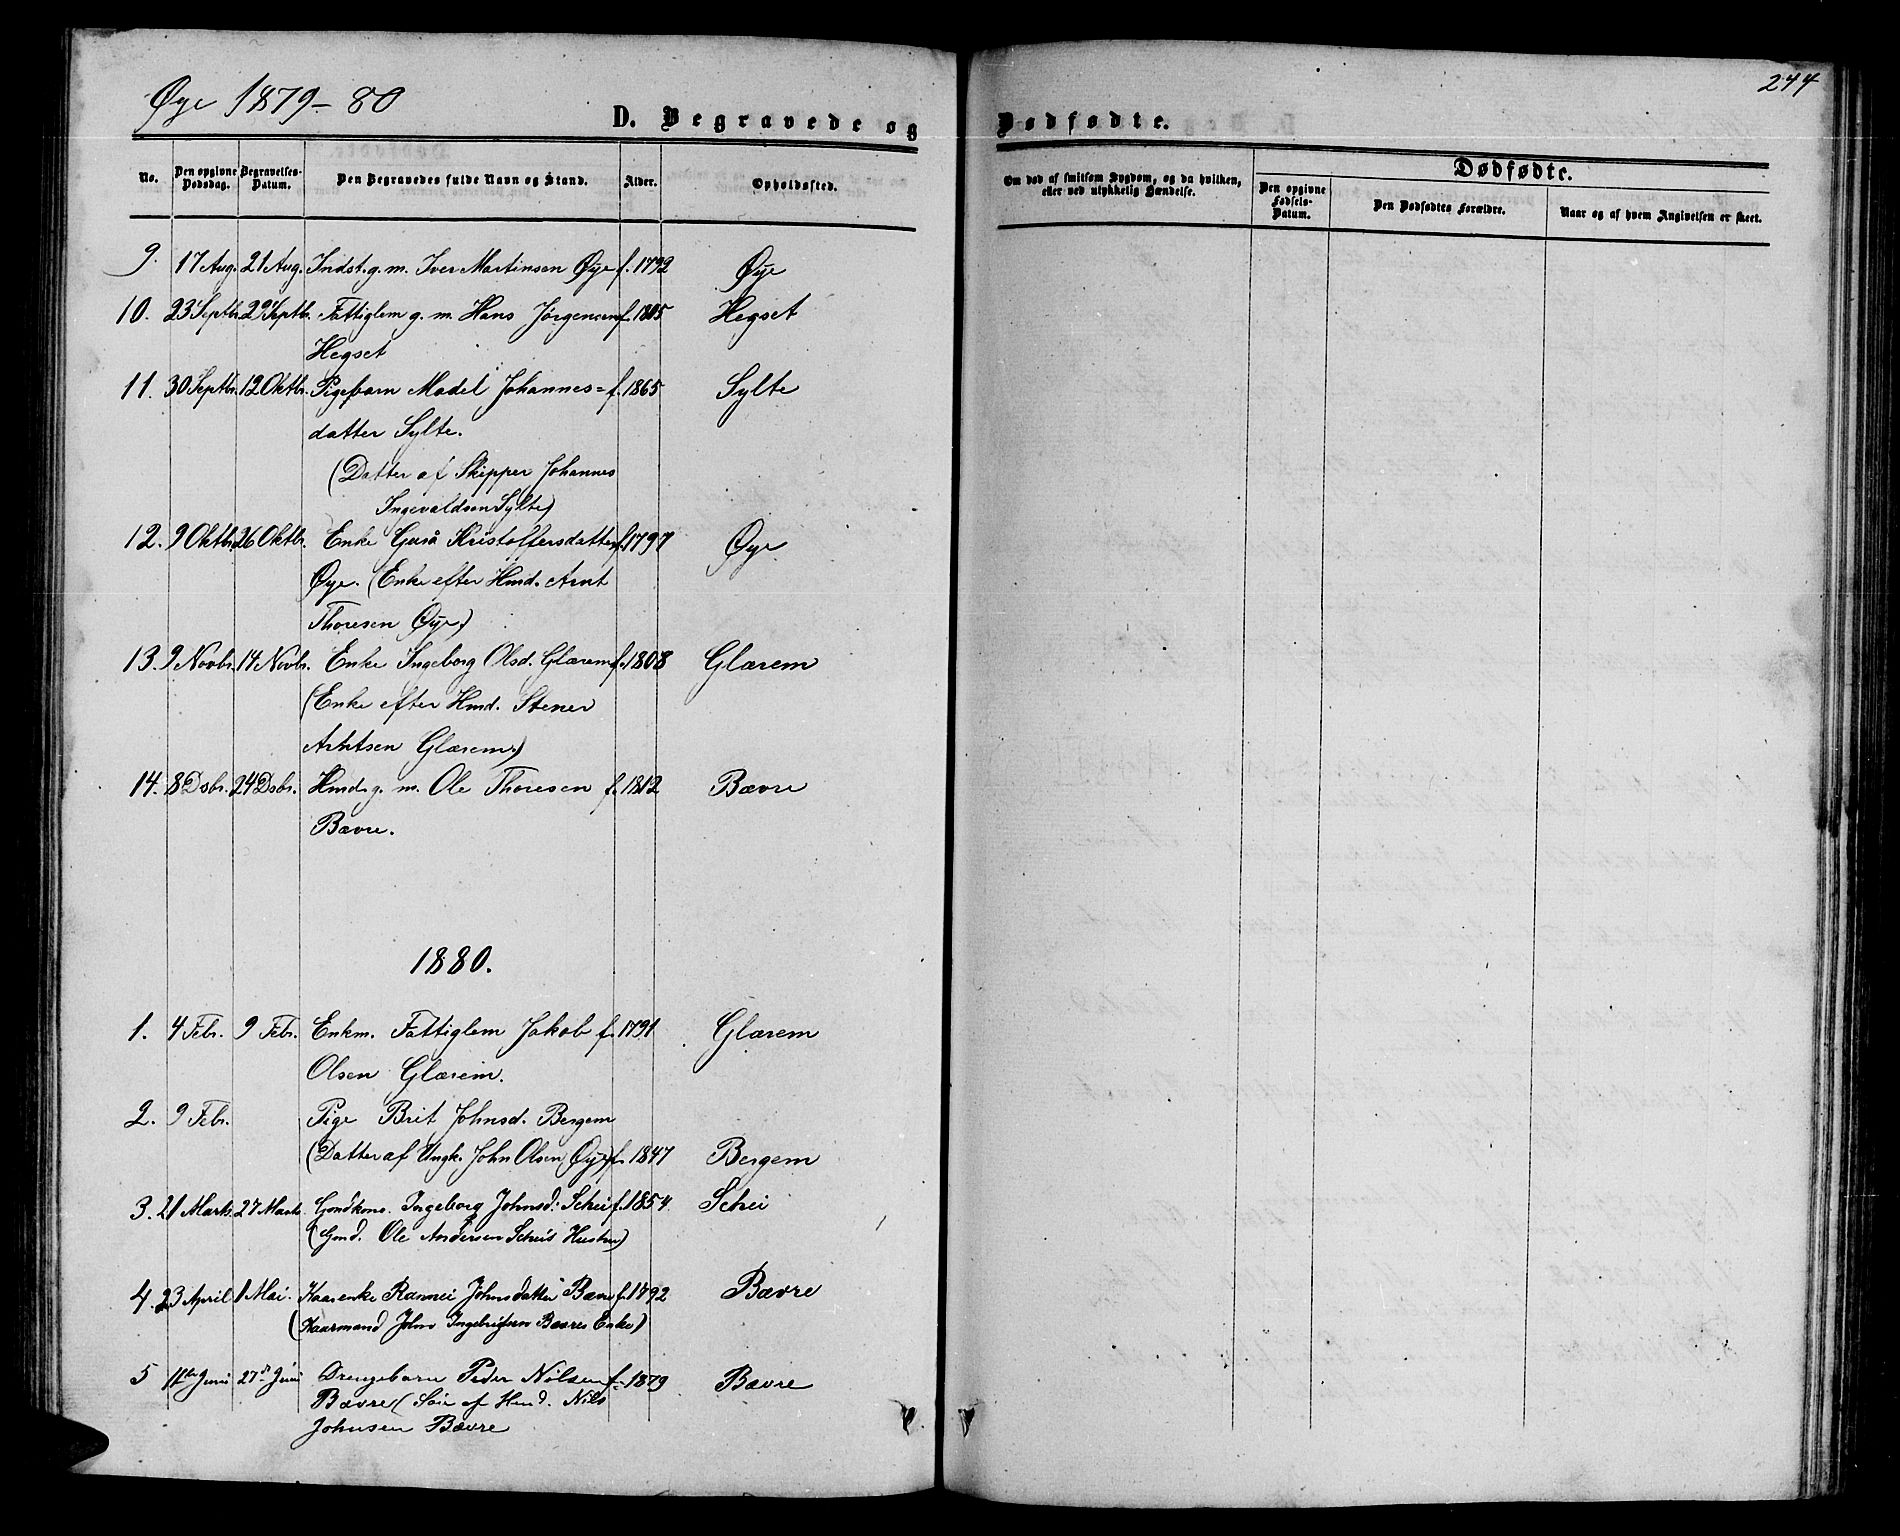 Øye 1879-80
244
D. Begravede og
Dødfødte.
No.
Den opgivne Dødsdag.
Begravelses-Datum.
Den Begravedes fulde Navn og Stand.
Alder.
Opholdssted.
Om død af smitsom Sygdom, og da hvilken, eller ved ulykkelig Hændelse.
Dødfødte.
Den opgivne Fødsels-Datum.
Den Dødfødtes Forældre.
Naar og af hvem Angivelsen er skeet.
9. 17 Aug. 21 Aug. Indst. g. m. Iver Martinsen Øye f. 1792 Øye
10. 23 Septbr. 29 Septbr. Fattiglem g. m. Hans Jørgensen f. 1805 Hegset
Hegset
11. 30 Septbr. 12 Oktbr. Pigebarn Madel Johannes= f. 1865 Sylte
datter Sylte.
(Datter af Skipper Johannes
Ingevaldsen Sylte)
12. 9 Oktbr. 26 Oktbr. Enke Guró Kristoffersdatter f. 1797 Øye
Øye. (Enke efter Hmd. Arnt
Thoresen Øye)
13. 9 Novbr. 14 Novbr. Enke Ingeborg Olsd. Glærem f. 1808 Glærem
(Enke efter Hmd. Stener
Arntsen Glærem.)
14. 8 Dsbr. 24 Dsbr. Hmd. g. m. Ole Thoresen f. 1812 Bævre
Bævre.
1880.
1. 4 Febr. 9 Febr. Enkm. Fattiglem Jakob f. 1791 Glærem
Olsen Glærem.
2. 9 Febr. Pige Brit Johnsd. Bergem
(Datter af Ungk. John Olsen Øye) f. 1847 Bergem
3. 21 Marts. 27 Marts. Gmdkone. Ingeborg Johnsd: Schei f. 1854 Schei
(Gmd. Ole Andersen Scheis Hustru)
4. 23 April 1 Mai. Kaarenke Rannei Johnsdatter Bævre f. 1792 Bævre
(Kaarmand John Ingebrigtsen Bævres Enke)
5 11te Juni 27de Juni Drengebarn Peder Nilsen f. 1879 Bævre
Bævre (Søn af Hmd. Nils
Johnsen Bævre